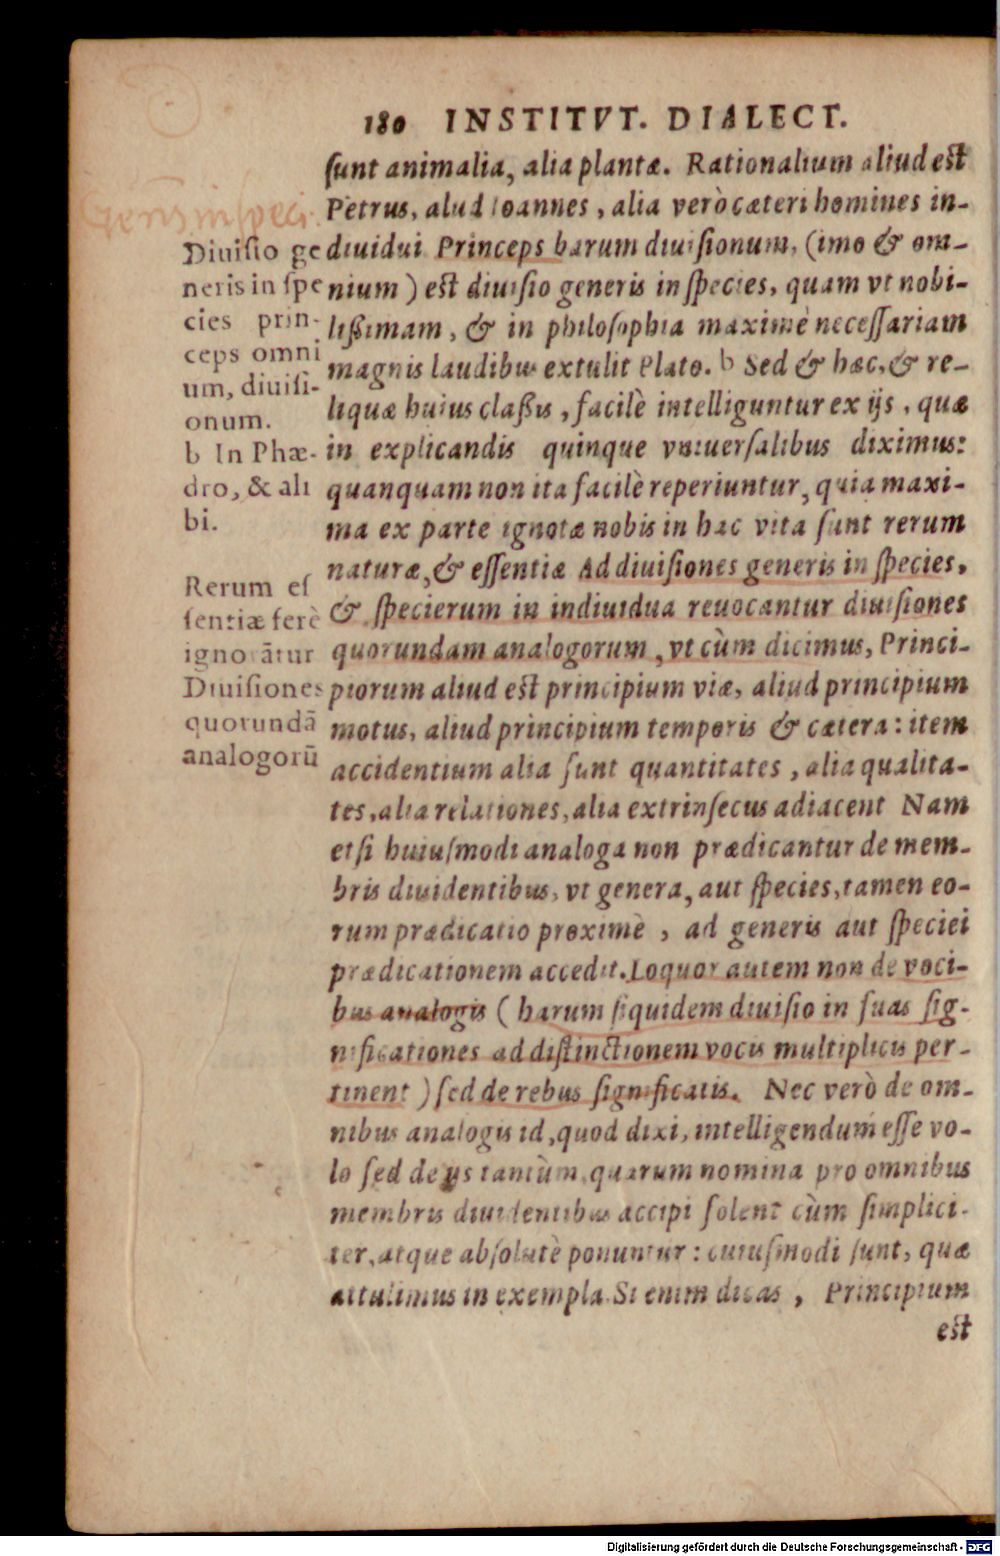 180 INSTITVT. DIALECT.
sunt animalia, alia plantæ. Rationalium aliud est
Petrus, alud Ioannes, alia verò cæteri homines in-
diuidui Princeps harum diuisionum, (imo & om-
nium) est diuisio generis in species, quam vt nobi-
lißimam, & in philosophia maximè necessariam
magnis laudibus extulit Plato. b Sed & hæc, & re-
liquæ huius claßis, facilè intelliguntur ex ijs, quæ
in explicandis quinque vniuersalibus diximus:
quanquam non ita facilè reperiuntur, quia maxi-
ma ex parte ignotæ nobis in hac vita sunt rerum
naturæ, & essentiæ Ad diuisiones generis in species,
& specierum in indiuidua reuocantur diuisiones
quorundam analogorum, vt cùm dicimus, Princi-
piorum aliud est principium viæ, aliud principium
motus, aliud principium temporis & cætera: item
accidentium alia sunt quantitates, alia qualita-
tes, alia relationes, alia extrinsecus adiacent Nam
etsi huiusmodi analoga non prædicantur de mem-
bris diuidentibus, vt genera, aut species, tamen eo-
rum prædicatio proximè, ad generis aut speciei
prædicationem accedit. Loquor autem non de voci-
bus analogis (harum siquidem diuisio in suas sig-
nificationes ad distinctionem vocis multiplicis per-
tinent) sed de rebus significatis. Nec verò de om-
nibus analogis id, quod dixi, intelligendum esse vo-
lo sed de ijs tantùm, quarum nomina pro omnibus
membris diuidentibus accipi solent cùm simplici-
ter, atque absolutè ponuntur: cuiusmodi sunt, quæ
attulimus in exempla. Si enim dicas, Principium
est
Gen⁹ in speci.
Diuisio ge
neris in spe
cies prin-
ceps omni
um, diuisi-
onum.
b In Phæ-
dro, & ali
bi.
Rerum es
sentiæ ferè
ignorātur
Diuisiones
quorundā
analogorū
Digitalisierung gefördert durch die Deutsche Forschungsgemeinschaft - DFG